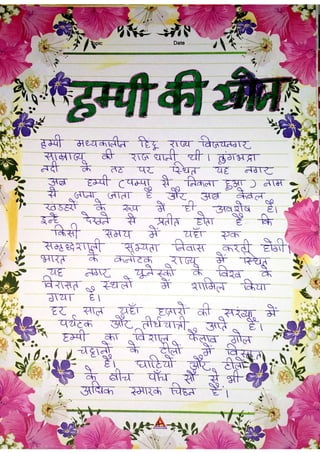 Topic Date
हम्पी की खोज
हम्पी मध्यकालीन हिंदू राज्य विजयनगर
साम्राज्य की राजधानी थी। तुंगभद्रा
नदी के तट पर स्थित यह नगर
अब हम्पी (पम्पा से निकला हुआ) नाम
से जाना जाता है और अब केवल
खंडहरों के रूप में ही अवशेष है।
इन्हें देखने से प्रतीत होता है कि
किसी समय में यहाँ एक
समृद्धशाली सभ्यता निवास करती होगी।
भारत के कर्नाटक राज्य में स्थित
यह नगर यूनेस्को के विश्व के
विरासत स्थलों में शामिल किया
गया है।
हर साल यहाँ हज़ारों की संख्या में
पर्यटक और तीर्थयात्री आते हैं।
हम्पी का विशाल फैलाव गोल
चट्टानों के टीलों में विस्तृत
है। घाटियों और टीलों
के बीच पाँच सौ से भी
अधिक स्मारक चिह्न हैं।